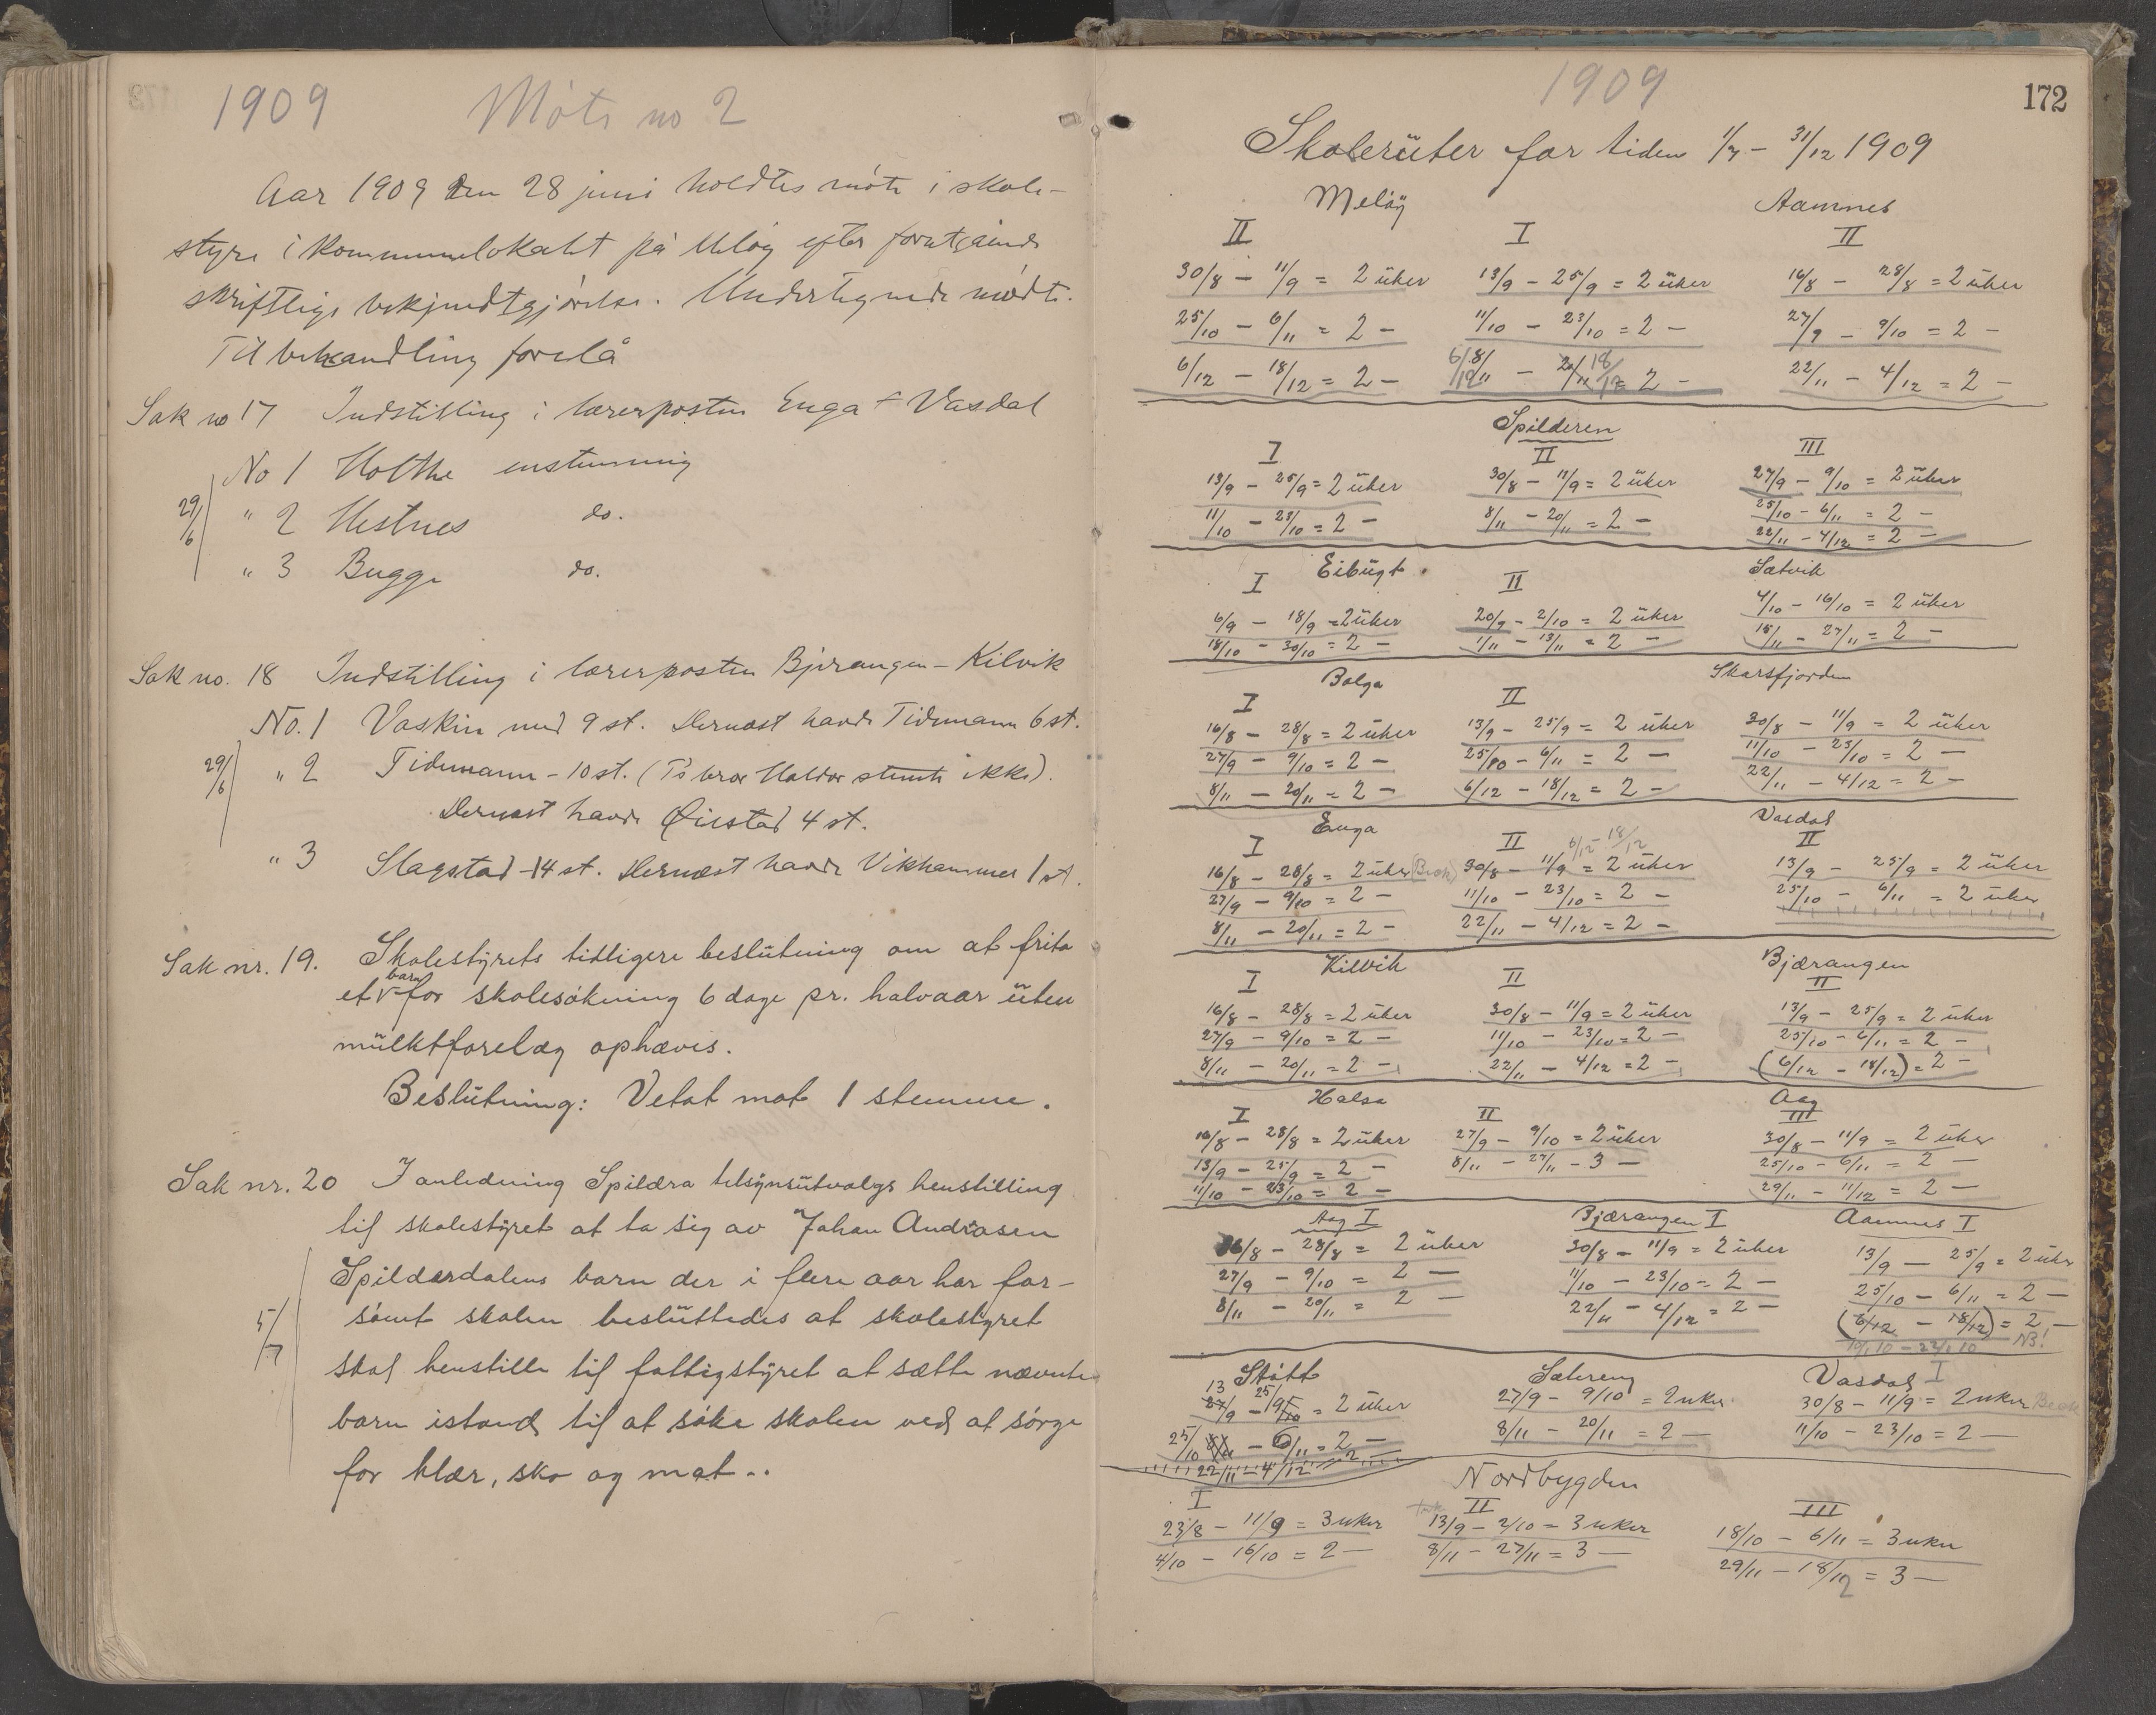 1909 Møte no 2
Aar 1909 den 28 juni holdtes møte i skole-
styre i kommunelokalet på Meløy efter forutgående
skriftlige bekjendtgjørelse. Undertegnede mødte.
Til behandling forelå
Sak no 17 Indstilling i lærerposten Enga + Vasdal
No 1 Holthe enstemmig
29/6 " 2 Hestnes do.
" 3 Bugge do.
Sak no. 18 Indstilling i lærerposten Bjerangen - Kilvik
No. 1 Vaskin med 9 st. Dernæst havde Tidemann 6 st.
29/6 " 2 Tidemann - 10 st. (T's bror Haldor stemte ikke).
Dernæst havde Øiestad 4 st.
" 3 Slagstad - 14 st. Dernæst havde Vikhammer 1 st.
Sak nr. 19. Skolestyrets tidligere beslutning om at frita
et barn for skolesøkning 6 dage pr. halvaar uten
mulktforelæg ophæves.
Beslutning: Vetat mot 1 stemme.
Sak nr. 20 I anledning Spildra tilsynsutvalgs henstilling
til skolestyret at ta sig av Johan Andrasen
Spilderdalens barn der i flere aar har for-
sømt skolen besluttedes at skolestyret
5/7 skal henstille til fattigstyret at sætte nævnte
barn istand til at søke skolen ved at sørge
for klær, sko og mat..
1909
172
Skoleruter for tiden 1/7 - 31/12 1909
Meløy Aamnes
II I II
30/8 - 11/9 = 2 uker 13/9 - 25/9 = 2 uker 16/8 - 28/8 = 2 uker
25/10 - 6/11 = 2 - 11/10 - 23/10 = 2 - 27/9 - 9/10 = 2 -
6/12 - 18/12 = 2 - 6/12 - 18/12 = 2 - 22/11 - 4/12 = 2 -
Spilderen
I II III
13/9 - 25/9 = 2 uker 30/8 - 11/9 = 2 uker 27/9 - 9/10 = 2 uker
11/10 - 23/10 = 2 - 8/11 - 20/11 = 2 - 25/10 - 6/11 = 2 -
22/11 - 4/12 = 2 -
Eibugt Sætvik
I II
6/9 - 18/9 = 2 uker 20/9 - 2/10 = 2 uker 4/10 - 16/10 = 2 uker
18/10 - 30/10 = 2 - 1/11 - 13/11 = 2 - 15/11 - 27/11 = 2 -
Bolga Skarsfjorden
I II
16/8 - 28/8 = 2 uker 13/9 - 25/9 = 2 uker 30/8 - 11/9 = 2 uker
27/9 - 9/10 = 2 - 25/10 - 6/11 = 2 - 11/10 - 23/10 = 2 -
8/11 - 20/11 = 2 - 6/12 - 18/12 = 2 - 22/11 - 4/12 = 2 -
Enga Vasdal
I II 6/12 - 18/12 II
16/8 - 28/8 = 2 uker (Beck) 30/8 - 11/9 = 2 uker 13/9 - 25/9 = 2 uker
27/9 - 9/10 = 2 - 11/10 - 23/10 = 2 - 25/10 - 6/11 = 2 uker
8/11 - 20/11 = 2 - 22/11 - 4/12 = 2 -
Kilvik Bjærangen
I II II
16/8 - 28/8 = 2 uker 30/8 - 11/9 = 2 uker 13/9 - 25/9 = 2 uker
27/9 - 9/10 = 2 - 11/10 - 23/10 = 2 - 25/10 - 6/11 = 2 -
8/11 - 20/11 = 2 - 22/11 - 4/12 = 2 - (6/12 - 18/12) = 2 -
Halsa Aag
I II III
16/8 - 28/8 = 2 uker 27/9 - 9/10 = 2 uker 30/8 - 11/9 = 2 uker
13/9 - 25/9 = 2 - 8/11 - 27/11 - 3 - 25/10 - 6/11 = 2 -
11/10 - 23/10 = 2 - 29/11 - 11/12 = 2 -
Aag I Bjærangen I Aamnes I
16/8 - 28/8 = 2 uker 30/8 - 11/9 = 2 uker 13/9 - 25/9 = 2 uker
27/9 - 9/10 = 2 - 11/10 - 23/10 = 2 - 25/10 - 6/11 = 2 -
8/11 - 20/11 = 2 - 22/11 - 4/12 = 2 - (6/12 - 18/12) = 2 -
NB!
Støtt Sætereng Vasdal I
13 25/9 = 2 uker 27/9 - 9/10 = 2 uker 30/8 - 11/9 = 2 uker Beck
25/10 - 6/11 = 2 - 8/11 - 20/11 = 2 - 11/10 - 23/10 = 2 -
22/11 - 4/12 2 -
Nordbygden
I II III
23/8 - 11/9 = 3 uker 13/9 - 2/10 = 3 uker 18/10 - 6/11 = 3 uker
4/10 - 16/10 = 2 - 8/11 - 27/11 = 3 - 29/11 - 18/12 = 3 -